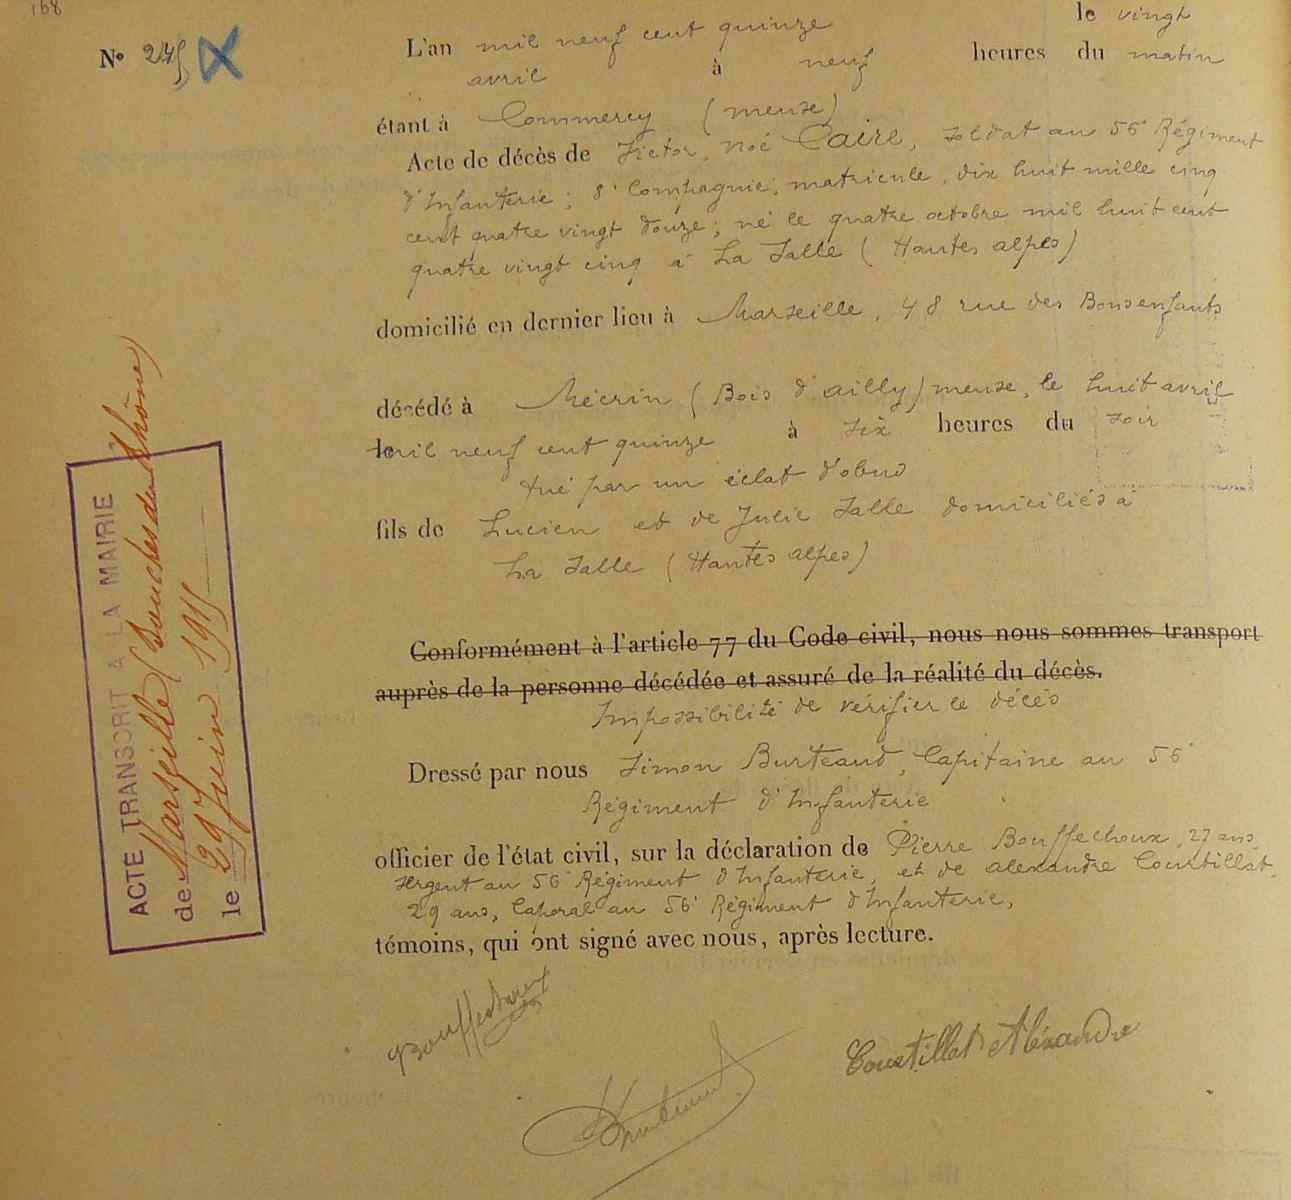 168
N° 275
L'an mil neuf cent quinze le vingt
avril à neuf heures du matin
étant à Commercy (meuse)
Acte de décès de Victor, Noé Caire, soldat au 56e Régiment
d'Infanterie; 8e Compagnie; matricule, dix huit mille cinq
cent quatre vingt douze; né le quatre octobre mil huit cent
quatre vingt cinq à La Salle (Hautes alpes)
domicilié en dernier lieu à Marseille, 48 rue des Bonsenfants
décédé à Mécrin (Bois d'ailly) meuse, le huit avril
mil neuf cent quinze à six heures du soir
tué par un éclat d'obus
fils de Lucien et de Julie Salle domiciliés à
La Salle (Hautes alpes)
Conformément à l'article 77 du Code civil, nous nous sommes transport
auprès de la personne décédée et assuré de la réalité du décès.
Impossibilité de vérifier le décès
Dressé par nous Simon Burteaud, Capitaine au 56e
Régiment d'Infanterie
officier de l'état civil, sur la déclaration de Pierre Bouffechoux, 27 ans,
sergent au 56e Régiment d'Infanterie, et de alexandre Courtillat,
29 ans, Caporal au 56e Régiment d'Infanterie,
témoins, qui ont signé avec nous, après lecture.
Bouffechoux
Courtillat Aléxandre
ACTE TRANSCRIT A LA MAIRIE
de Marseille (Bouches du Rhône)
le 29 Juin 1915